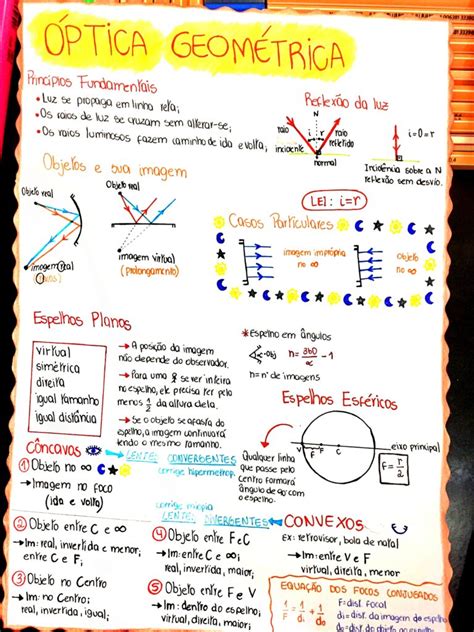 ÓPTICA GEOMÉTRICA
Princípios Fundamentais
• Luz se propaga em linha reta;
• Os raios de luz se cruzam sem alterar-se;
• Os raios luminosos fazem caminho de ida e volta;
Reflexão da luz
N
raio
incidente
raio
refletido
normal
i=0=r
Incidência sobre a N
reflexão sem desvio.
LEI: i=r
Objetos e sua imagem
Objeto real
imagem real
Objeto real
imagem virtual
(prolongamento)
Casos Particulares
imagem imprópria
no ∞
Objeto
no ∞
Espelhos Planos
virtual
simétrica
direita
igual tamanho
igual distância
→ A posição da imagem
não depende do observador.
→ Para uma
se ver inteira
no espelho, ele precisa ter pelo
menos 1/2 da altura dela.
→ Se o objeto se afasta do
espelho, a imagem continuará
tendo o mesmo tamanho.
*Espelho em ângulos
n= 360/α - 1
n= nº de imagens
Espelhos Esféricos
V F C
eixo principal
F = r/2
Qualquer linha
que passe pelo
centro formará
ângulo de 90° com
o espelho.
Côncavas
LENTE: CONVERGENTES
corrige hipermetrop.
① Objeto no ∞
→ Imagem no foco
(ida e volta)
corrige miopia
LENTE: DIVERGENTES
CONVEXOS
ex: retrovisor, bola de natal
→ Im: entre V e F
virtual, direita, menor
② Objeto entre C e ∞
→ Im: real, invertida e menor,
entre C e F;
③ Objeto no Centro
→ Im: no Centro;
real, invertida, igual;
④ Objeto entre F e C
→ Im: entre C e ∞;
real, invertida, maior;
⑤ Objeto entre F e V
→ Im: dentro do espelho;
virtual, direita, maior;
EQUAÇÃO DOS FOCOS CONJUGADOS
1/F = 1/di + 1/do
F= dist. focal
di= dist. da imagem do espelho
do= dist. do objeto do